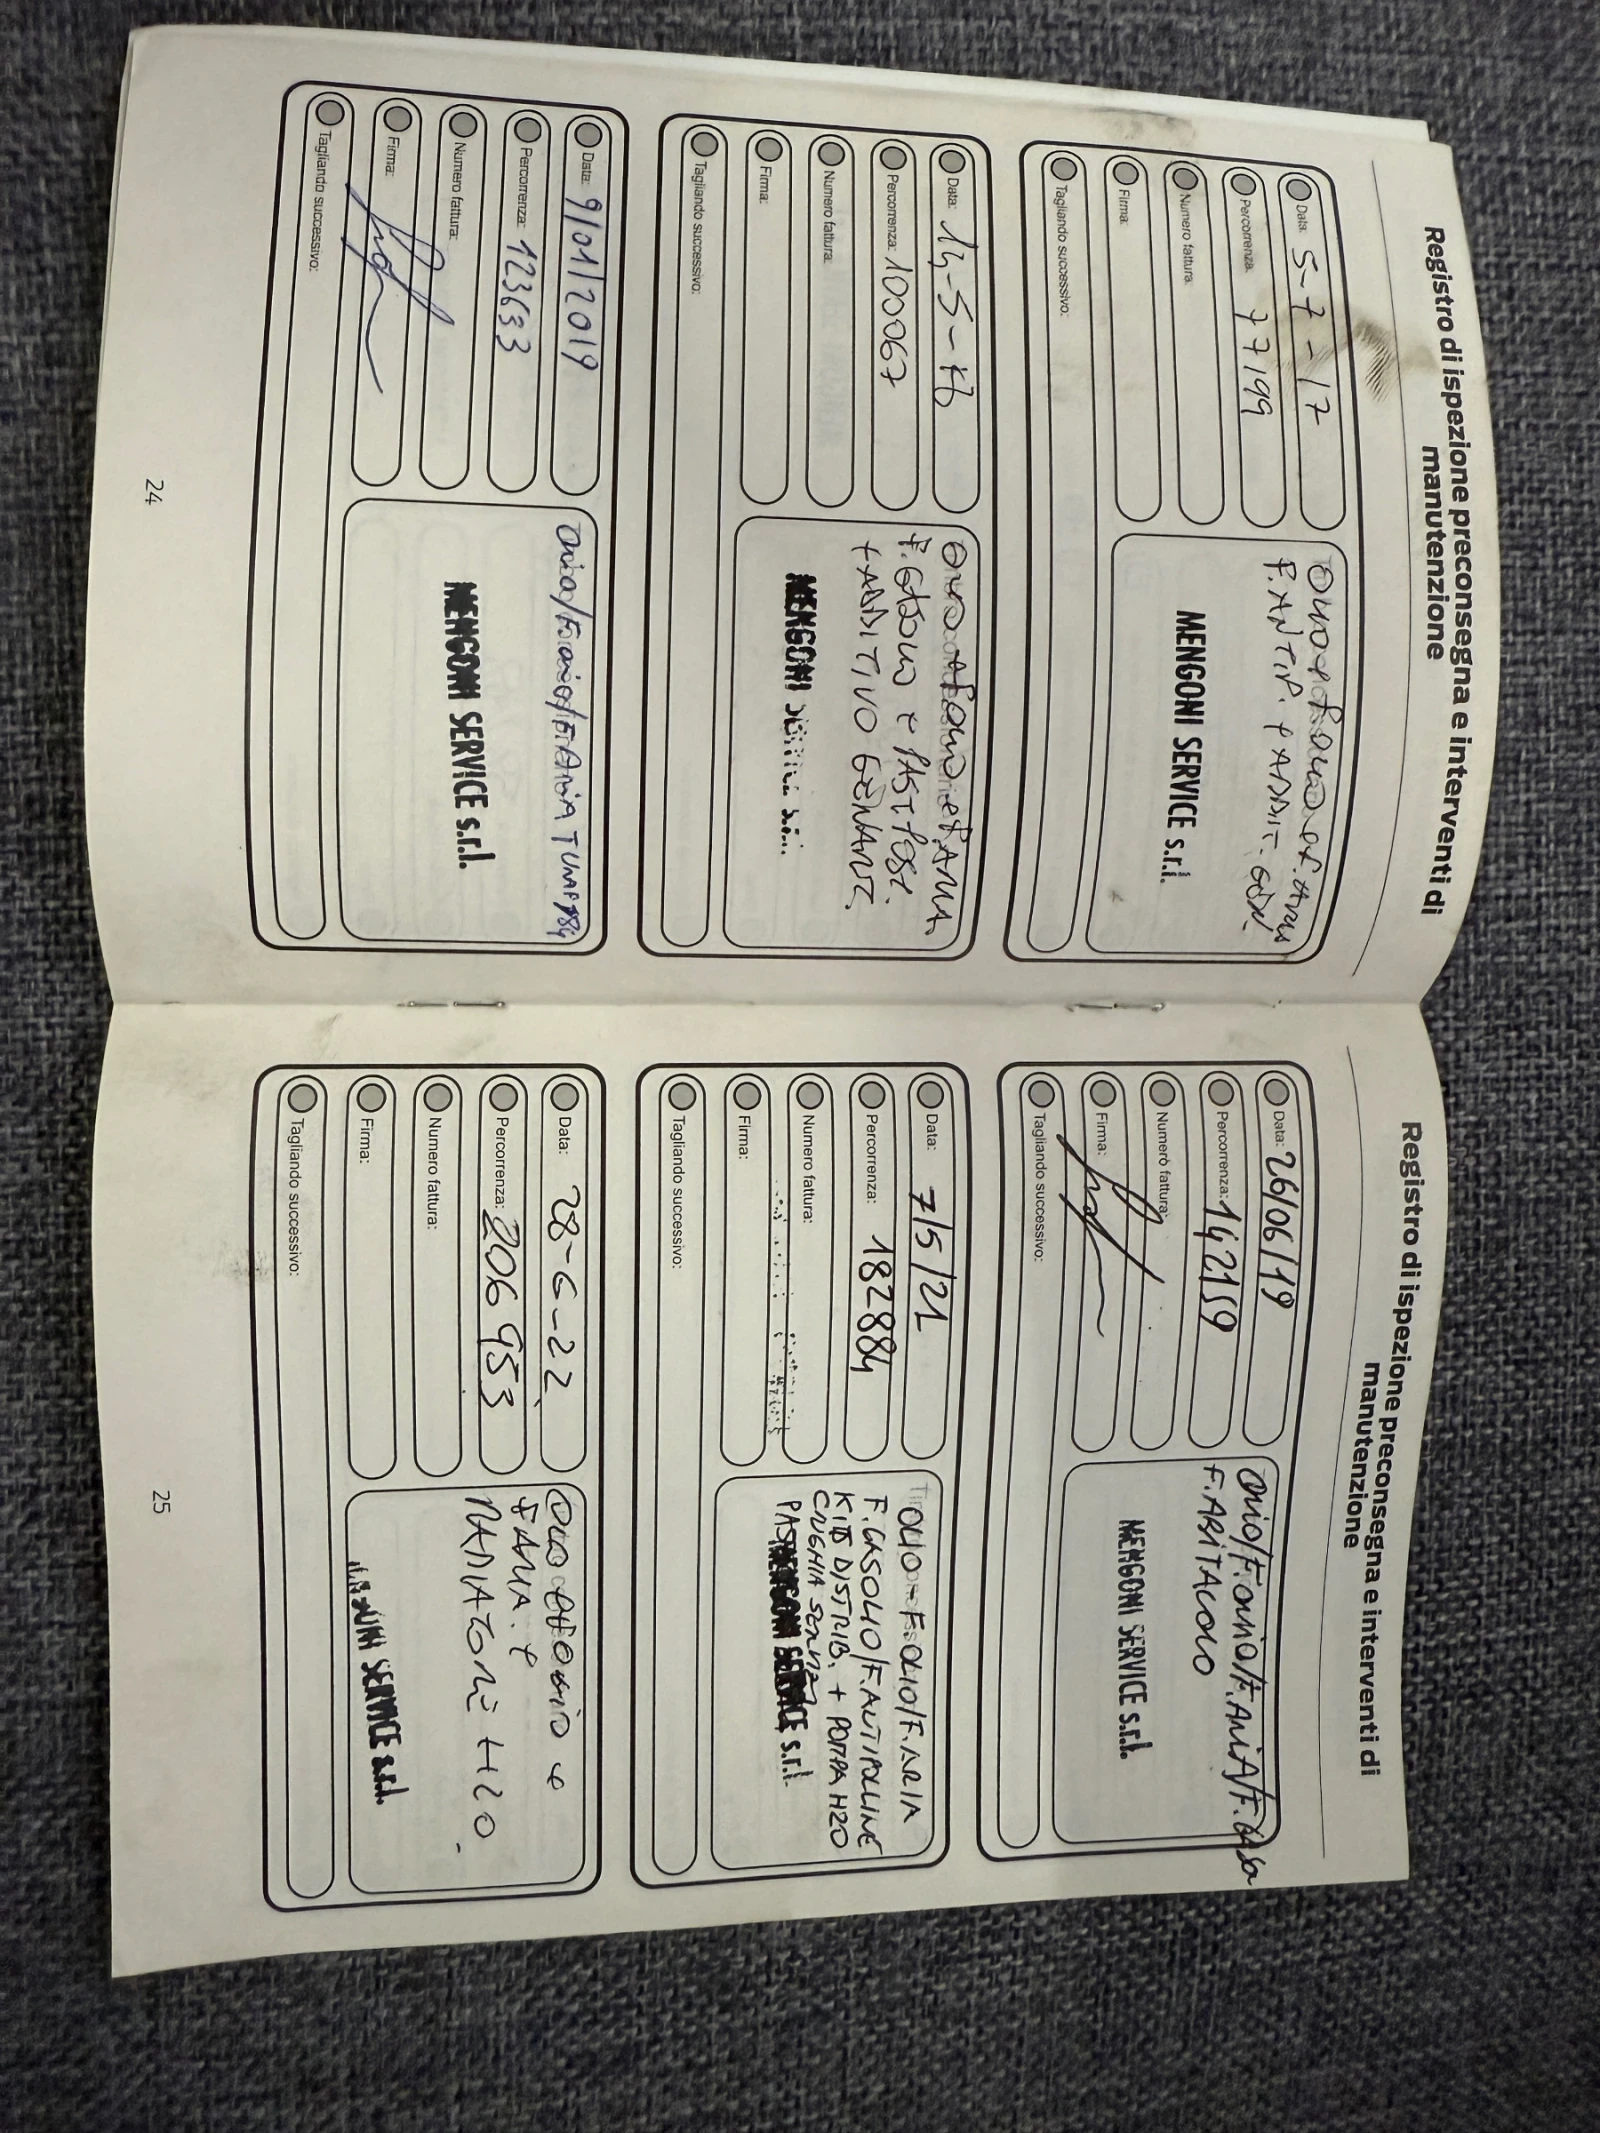 Registro di ispezione preconsegna e interventi di
manutenzione
Data: 5-7-17
Percorrenza: 77199
Numero fattura:
Firma:
Tagliando successivo:
F. ANTIP. + ADDIT.
MENGONI SERVICE s.r.l.
Data: 14-5-18
Percorrenza: 100067
Numero fattura:
Firma:
Tagliando successivo:
+ ADDITIVO
MENGONI
Data: 9/01/2019
Percorrenza: 123633
Numero fattura:
Firma:
Tagliando successivo:
MENGONI SERVICE s.r.l.
24
Registro di ispezione preconsegna e interventi di
manutenzione
Data: 26/06/19
Percorrenza: 142159
Numero fattura:
Firma:
Tagliando successivo:
OLIO/F.OLIO/F.ARIA/F.GASO
F.ABITACOLO
MENGONI SERVICE s.r.l.
Data: 7/5/21
Percorrenza: 182884
Numero fattura:
Firma:
Tagliando successivo:
OLIO-F.OLIO/F.ARIA
F.GASOLIO/F.ANTIPOLLINE
KIT DISTRIB. + POMPA H2O
CINGHIA SERVIZI
MENGONI SERVICE s.r.l.
Data: 28-6-22
Percorrenza: 206953
Numero fattura:
Firma:
Tagliando successivo:
F ARIA +
RADIATORE H2O
SERVICE s.r.l.
25